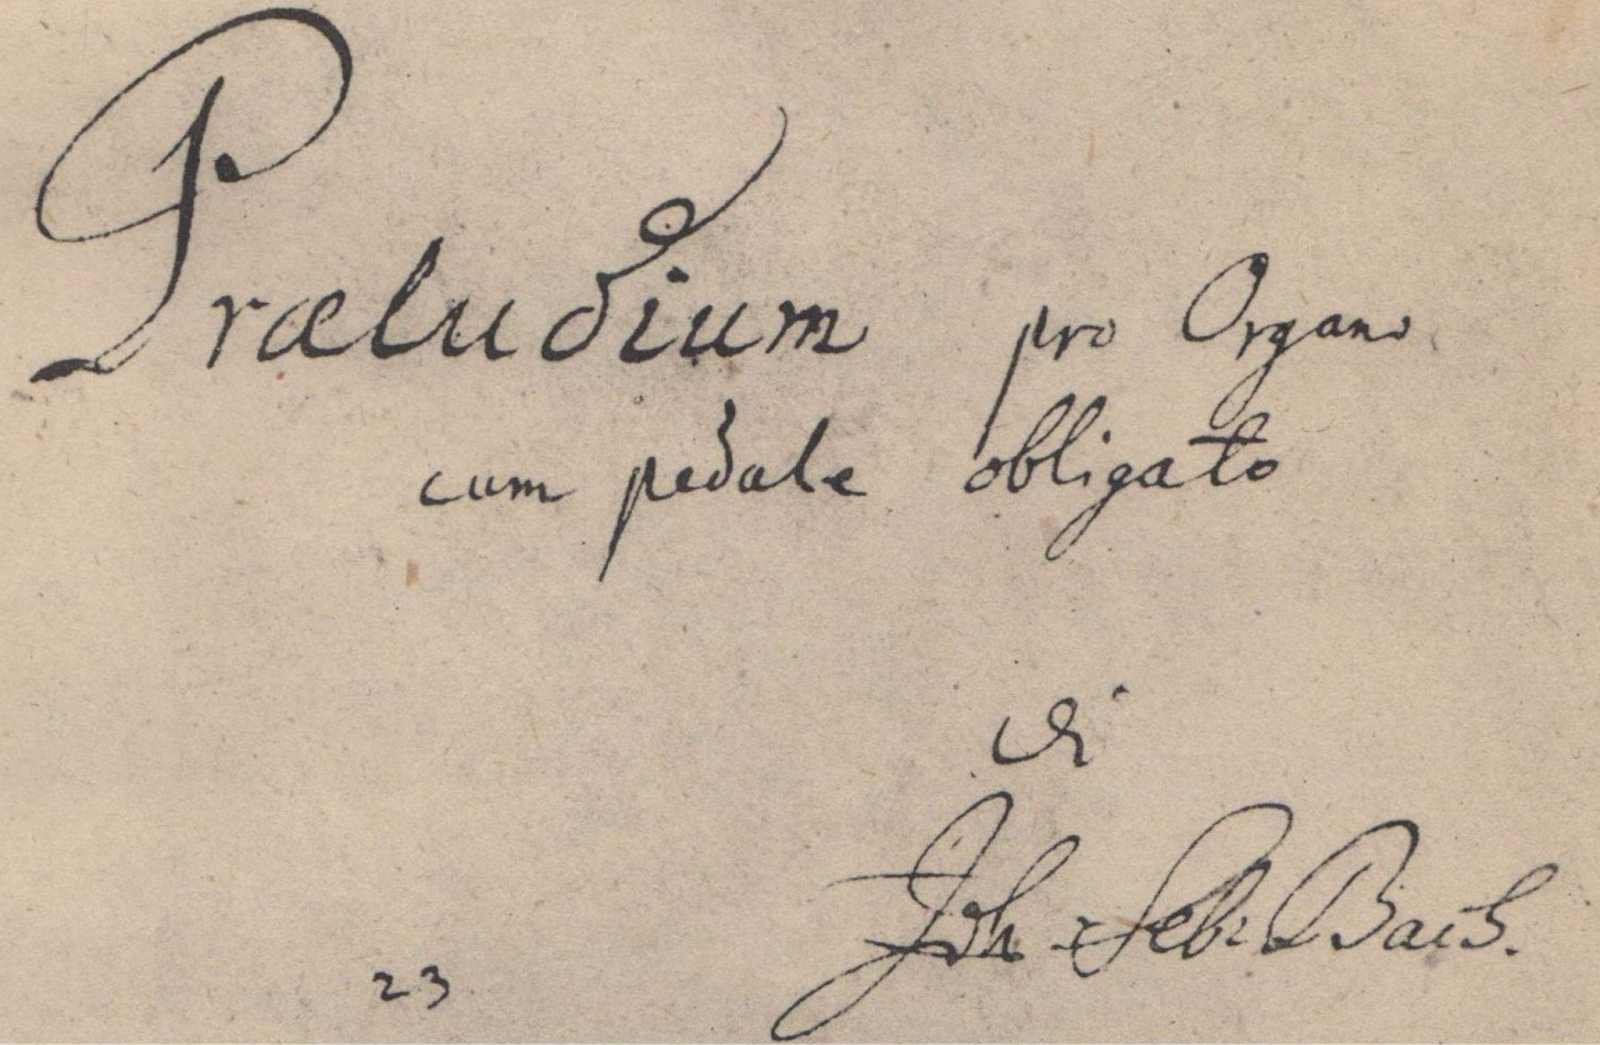 Præludium pro Organo
cum pedale obligato
di
Joh: Seb: Bach.
23